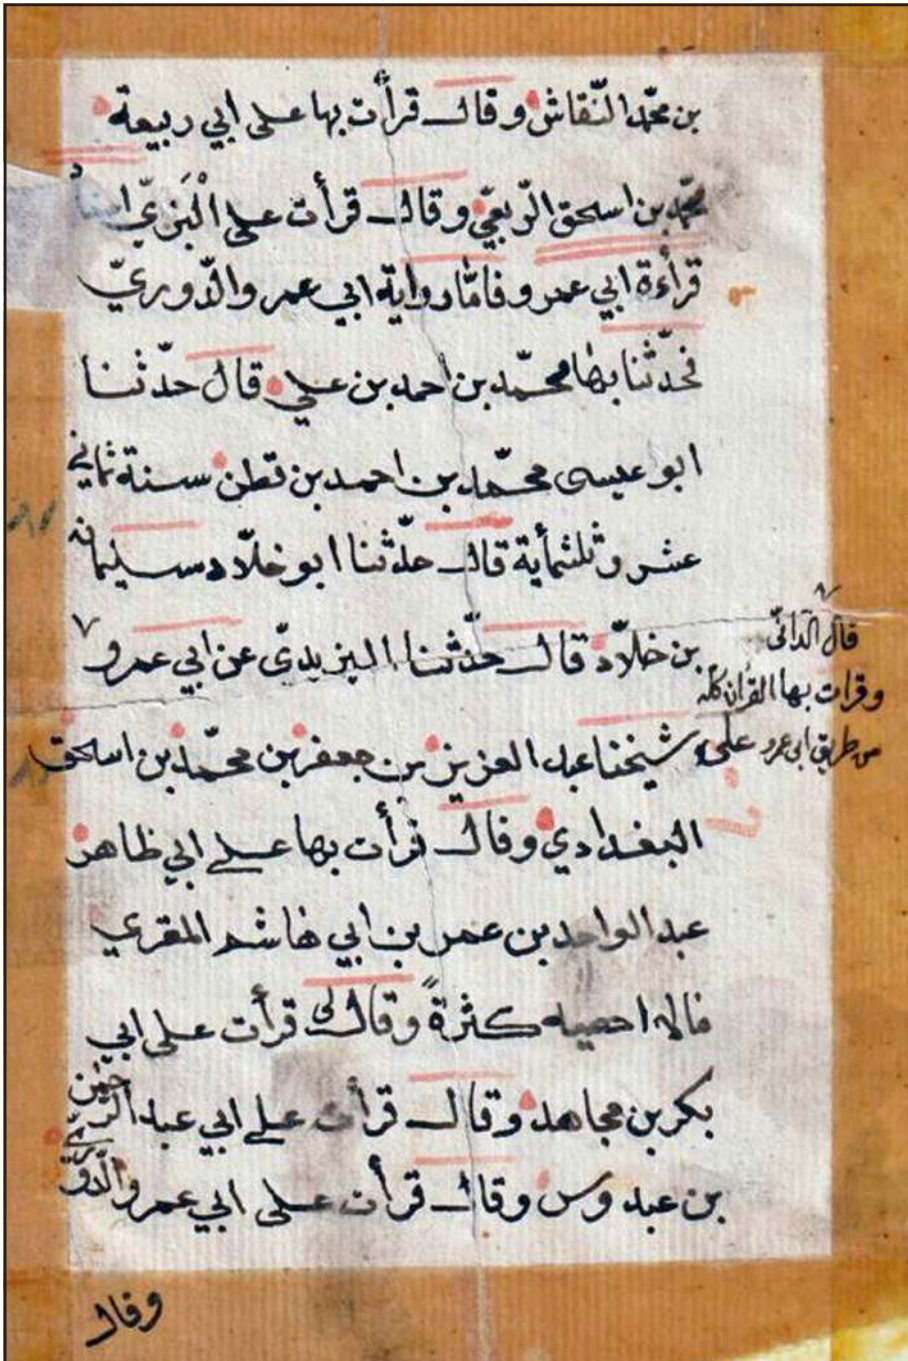 بن محمّد النّقاش وقال قرأت بها على ابي ربيعة
محمّد بن اسحق الرّبعيّ وقال قرأت على الْبَزيّ
قرأءة ابي عمرو فامّا رواية ابي عمر والدّوريّ
فحدّثنا بها محمّد بن احمد بن علي قال حدّثنا
ابو عيسى محمّد بن احمد بن قطن سنة ثماني
عشر وثلثمأية قال حدّثنا ابو خلّاد سليمان
بن خلّاد قال حدّثنا اليزيديّ عن ابي عمرو
قال الدّانيّ
وقرات بها القرآن كلّه
من طريق ابي عمرو على
شيخنا عبد العزيز بن جعفر بن محمّد بن اسحق
البغدادي وقال قرأت بها على ابي طاهر
عبد الواحد بن عمر بن ابي هاشم المقري
مالا احصيه كثرةً وقال لى قرأت على ابي
بكر بن مجاهد وقال قرأت على ابي عبد الرحمن
بن عبدوس وقال قرأت على ابي عمر والدّوريّ
وقال